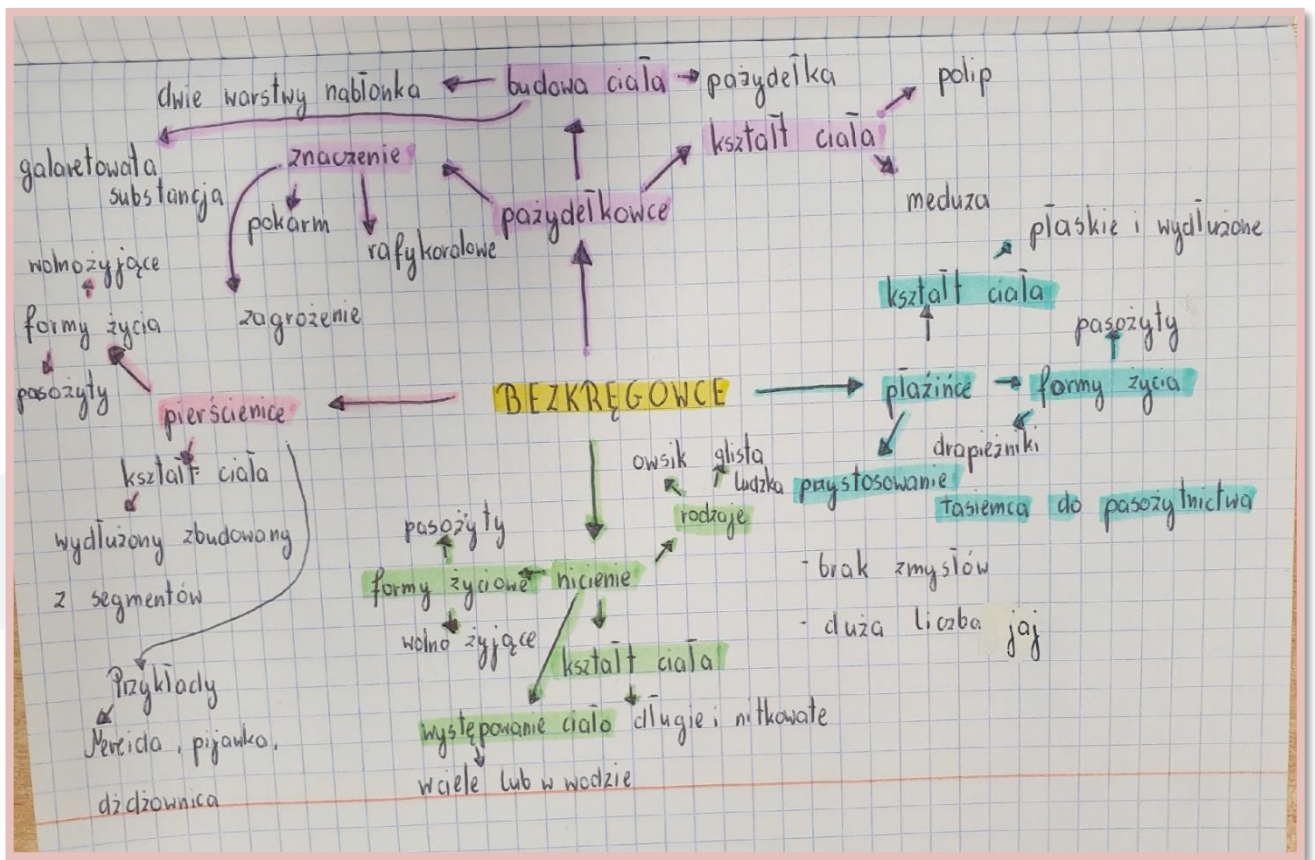 dwie warstwy nabłonka
budowa ciała
pażydełka
polip
galaretowata
substancja
znaczenie
kształt ciała
meduza
pokarm
rafykoralowe
zagrożenie
pażydełkowce
wolnożyjące
formy życia
pasożyty
pierścienice
kształt ciała
wydłużony zbudowany
z segmentów
Przykłady
Nereida, pijawka,
dżdżownica
BEZKRĘGOWCE
płaskie i wydłużone
kształt ciała
pasożyty
płaźińce
formy życia
drapieżniki
przystosowanie
tasiemca do pasożytnictwa
- brak zmysłów
- duża liczba jaj
owsik
glista
ludzka
rodzaje
pasożyty
formy życiowe
nicienie
wolno żyjące
kształt ciała
długie i nitkowate
występowanie ciało
wciele lub w wodzie